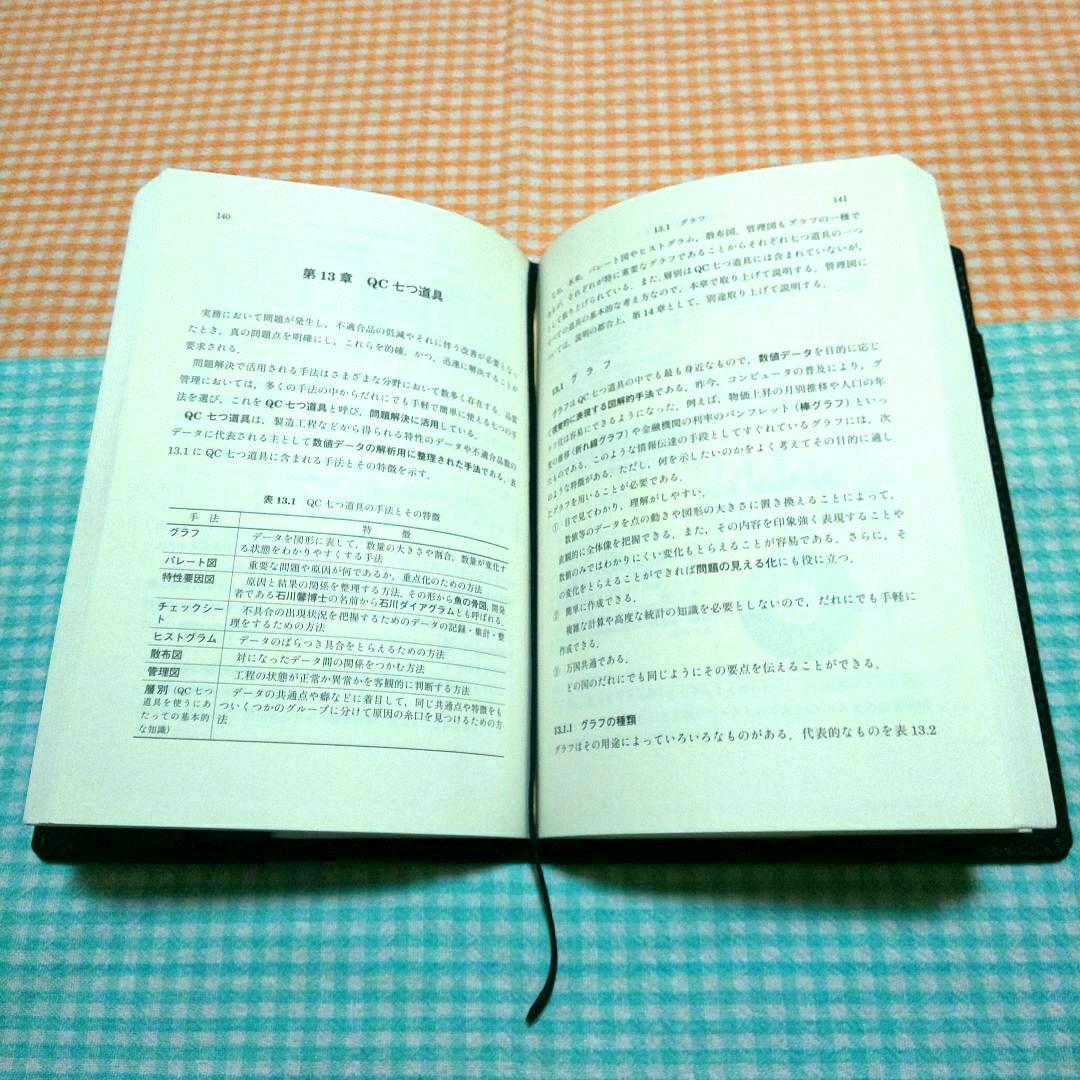 140
第13章 QC七つ道具
実務において問題が発生し，不適合品の低減やそれに伴う改善が必要となっ
たとき，真の問題点を明確にし，これらを的確，かつ，迅速に解決することが
要求される．
問題解決で活用される手法はさまざまな分野において数多く存在する．品質
管理においては，多くの手法の中からだれにでも手軽で簡単に使える七つの手
法を選び，これをQC七つ道具と呼び，問題解決に活用している．
QC七つ道具は，製造工程などから得られる特性のデータや不適合品数の
データに代表される主として数値データの解析用に整理された手法である．表
13.1にQC七つ道具に含まれる手法とその特徴を示す．
表13.1 QC七つ道具の手法とその特徴
手法 特徴
グラフ データを図形に表して，数量の大きさや割合，数量が変化す
る状態をわかりやすくする手法
パレート図 重要な問題や原因が何であるか，重点化のための方法
特性要因図 原因と結果の関係を整理する方法．その形から魚の骨図，開発
者である石川馨博士の名前から石川ダイアグラムとも呼ばれる．
チェックシー 不具合の出現状況を把握するためのデータの記録・集計・整
ト 理をするための方法
ヒストグラム データのばらつき具合をとらえるための方法
散布図 対になったデータ間の関係をつかむ方法
管理図 工程の状態が正常か異常かを客観的に判断する方法
層別（QC七つ データの共通点や癖などに着目して，同じ共通点や特徴をも
道具を使うにあ ついくつかのグループに分けて原因の糸口を見つけるための方
たっての基本的 法
な知識）
13.1 グラフ 141
なお，本来，パレート図やヒストグラム，散布図，管理図もグラフの一種で
あるが，それぞれが特に重要なグラフであることからそれぞれ七つ道具の一つ
として取り上げられている．また，層別はQC七つ道具には含まれていないが，
すべての道具の基本的な考え方なので，本章で取り上げて説明する．管理図に
ついては，説明の都合上，第14章として，別途取り上げて説明する．
13.1 グラフ
グラフはQC七つ道具の中でも最も身近なもので，数値データを目的に応じ
て視覚的に表現する図解的手法である．昨今，コンピュータの普及により，グ
ラフ化は容易にできるようになった．例えば，物価上昇の月別推移や人口の年
の推移（折れ線グラフ）や金融機関の利率のパンフレット（棒グラフ）といっ
たものである．このような情報伝達の手段としてすぐれているグラフには，次
のような特徴がある．ただし，何を示したいのかをよく考えてその目的に適し
たグラフを用いることが必要である．
① 目で見てわかり，理解がしやすい．
数値等のデータを点の動きや図形の大きさに置き換えることによって，
直観的に全体像を把握できる．また，その内容を印象強く表現することや
数値のみではわかりにくい変化もとらえることが容易である．さらに，そ
の変化をとらえることができれば問題の見える化にも役に立つ．
② 簡単に作成できる．
複雑な計算や高度な統計の知識を必要としないので，だれにでも手軽に
作成できる．
③ 万国共通である．
どの国のだれにでも同じようにその要点を伝えることができる．
13.1.1 グラフの種類
グラフはその用途によっていろいろなものがある．代表的なものを表13.2